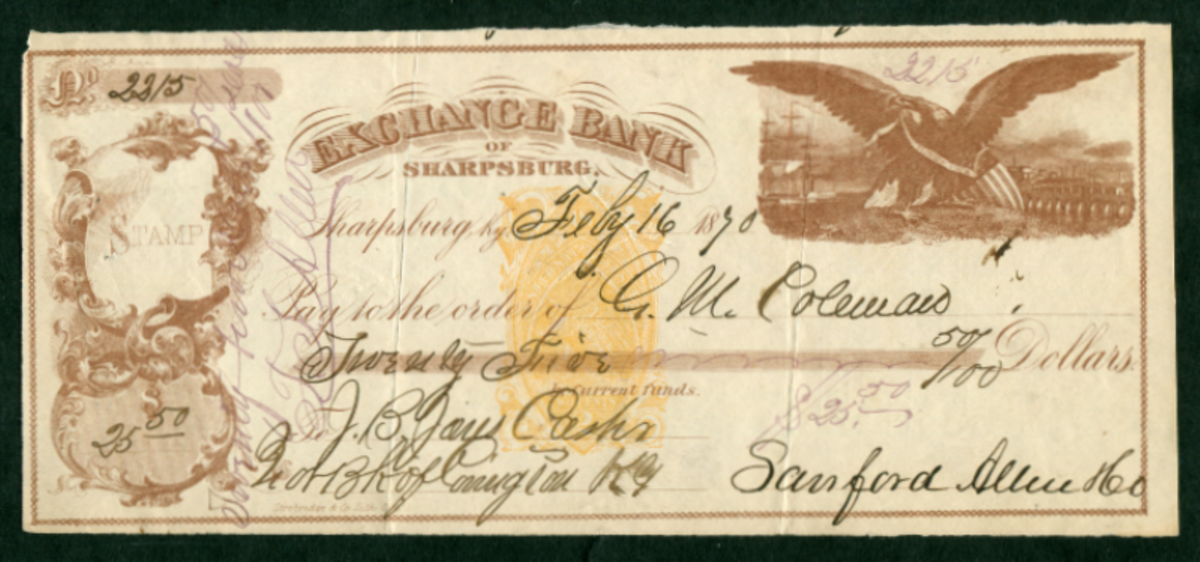 No 2215
2215
EXCHANGE BANK
OF
SHARPSBURG.
STAMP
Sharpsburg, Ky Feby 16 1870
Pay to the order of G. M. Coleman
Twenty Five 50/100 Dollars.
in Current funds.
$25.50
25 50
To J. B. Cashr
of Covington Ky
Sanford Allen & Co